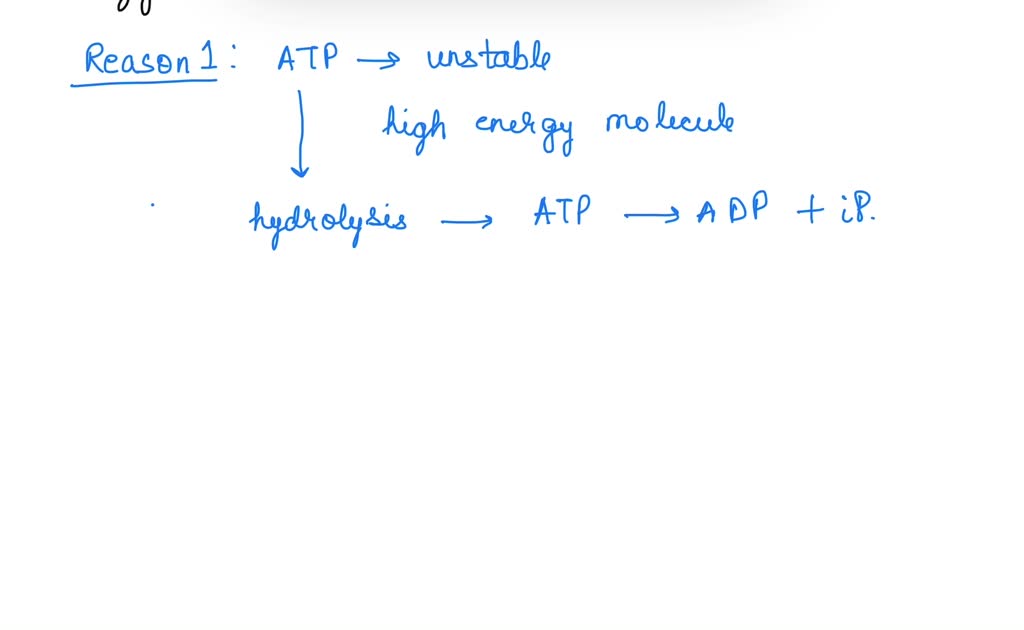 Reason 1 : ATP → unstable
↓ high energy molecule
hydrolysis → ATP → ADP + iP.